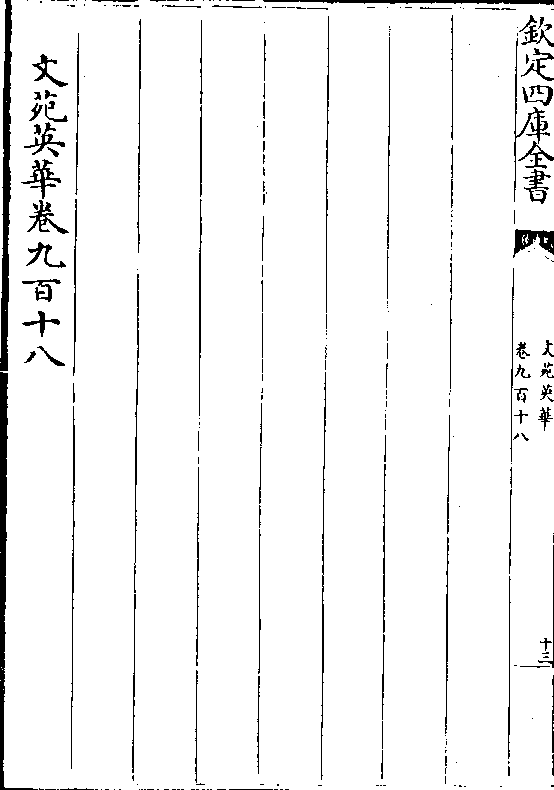 欽定四庫全書
文苑英華
卷九百十八
十三
文苑英華卷九百十八